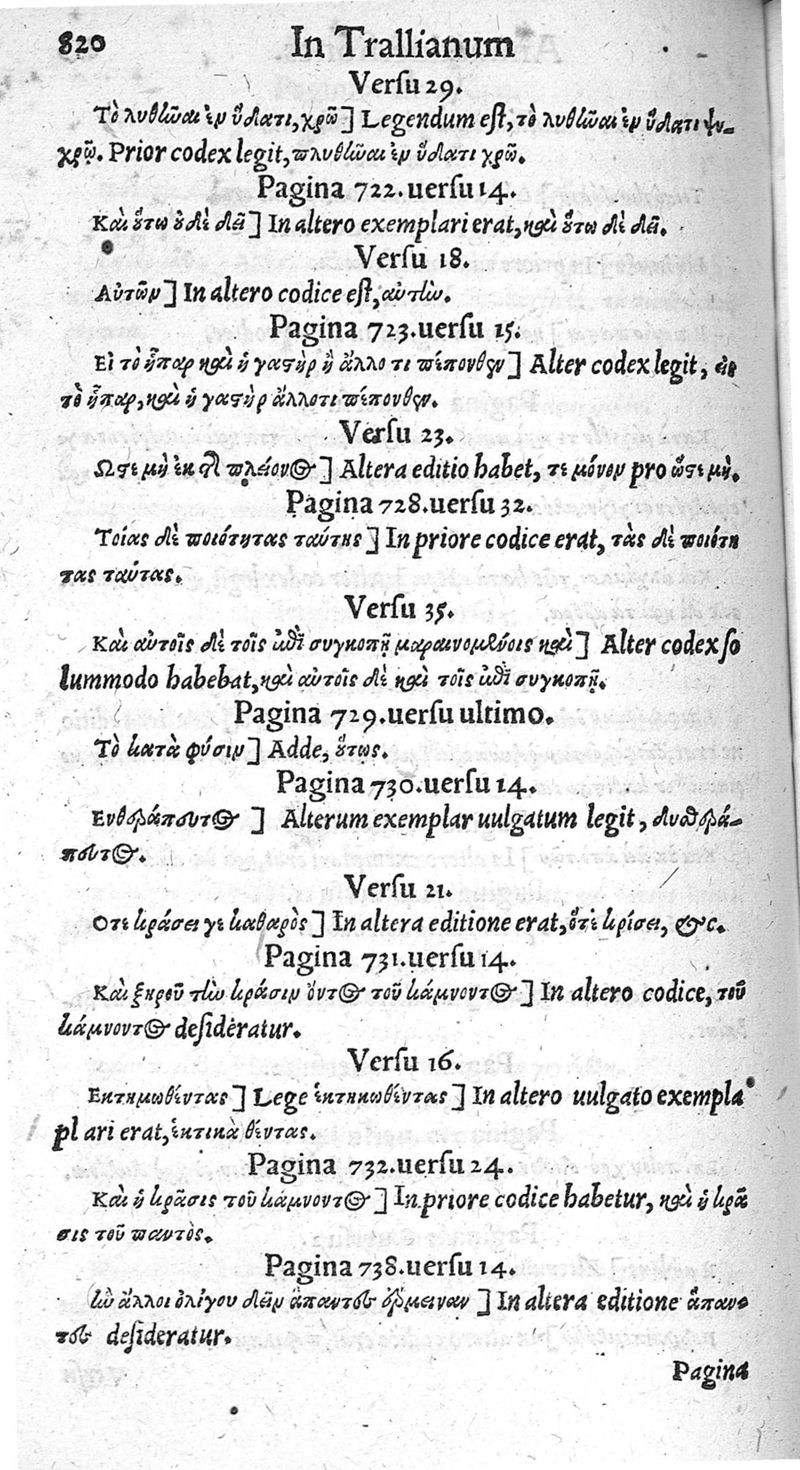 820 In Trallianum
Versu 29.
Τὸ λυθῶναι ἐν ὕδατι, χρῶ] Legendum est, τὸ λυθῶναι ἐν ὕδατι ψυ-
χρῷ. Prior codex legit, πλυθῶναι ἐν ὕδατι χρῶ.
Pagina 722. uersu 14.
Καὶ ὅτω ὀδὲ δεῖ] In altero exemplari erat, καὶ ὅτω δὲ δεῖ.
Versu 18.
Αὐτῶν] In altero codice est, αὐτὴν.
Pagina 723. uersu 15.
Εἰ τὸ ἧπαρ καὶ ἡ γαστὴρ ἢ ἄλλο τι πέπονθεν] Alter codex legit, εἰ
τὸ ἧπαρ, καὶ ἡ γαστὴρ ἄλλο τι πέπονθεν.
Versu 23.
Ωστε μὴ ἐκ τοῦ πλέονος] Altera editio habet, τε μόνον pro ὥστε μὴ.
Pagina 728. uersu 32.
Τοίας δὲ ποιότητας ταύτης] In priore codice erat, τὰς δὲ ποιότη
τας ταύτας.
Versu 35.
Καὶ αὐτοῖς δὲ τοῖς ἐπὶ συγκοπῇ μαραινομένοις καὶ] Alter codex so
lummodo habebat, καὶ αὐτοῖς δὲ καὶ τοῖς ἐπὶ συγκοπῇ.
Pagina 729. uersu ultimo.
Τὸ κατὰ φύσιν] Adde, ὅτως.
Pagina 730. uersu 14.
Alterum exemplar uulgatum legit,
Versu 21.
Οτι κράσει γε καθαρὸς] In altera editione erat, ὅτι κρίσει, &c.
Pagina 731. uersu 14.
Καὶ ξηροῦ τὴν κράσιν ὄντος τοῦ κάμνοντος] In altero codice, τοῦ
κάμνοντος desideratur.
Versu 16.
Εκτημωθέντας] Lege ἑκτηκωθέντας] In altero uulgato exempla
plari erat, ἑκτικὰ θέντας.
Pagina 732. uersu 24.
Καὶ ἡ κρᾶσις τοῦ κάμνοντος] In priore codice habetur, καὶ ἡ κρᾶ
σις τοῦ παντός.
Pagina 738. uersu 14.
ἄλλοι ὀλίγου δεῖν ἅπαντες] In altera editione ἅπαν-
τες desideratur.
Pagina